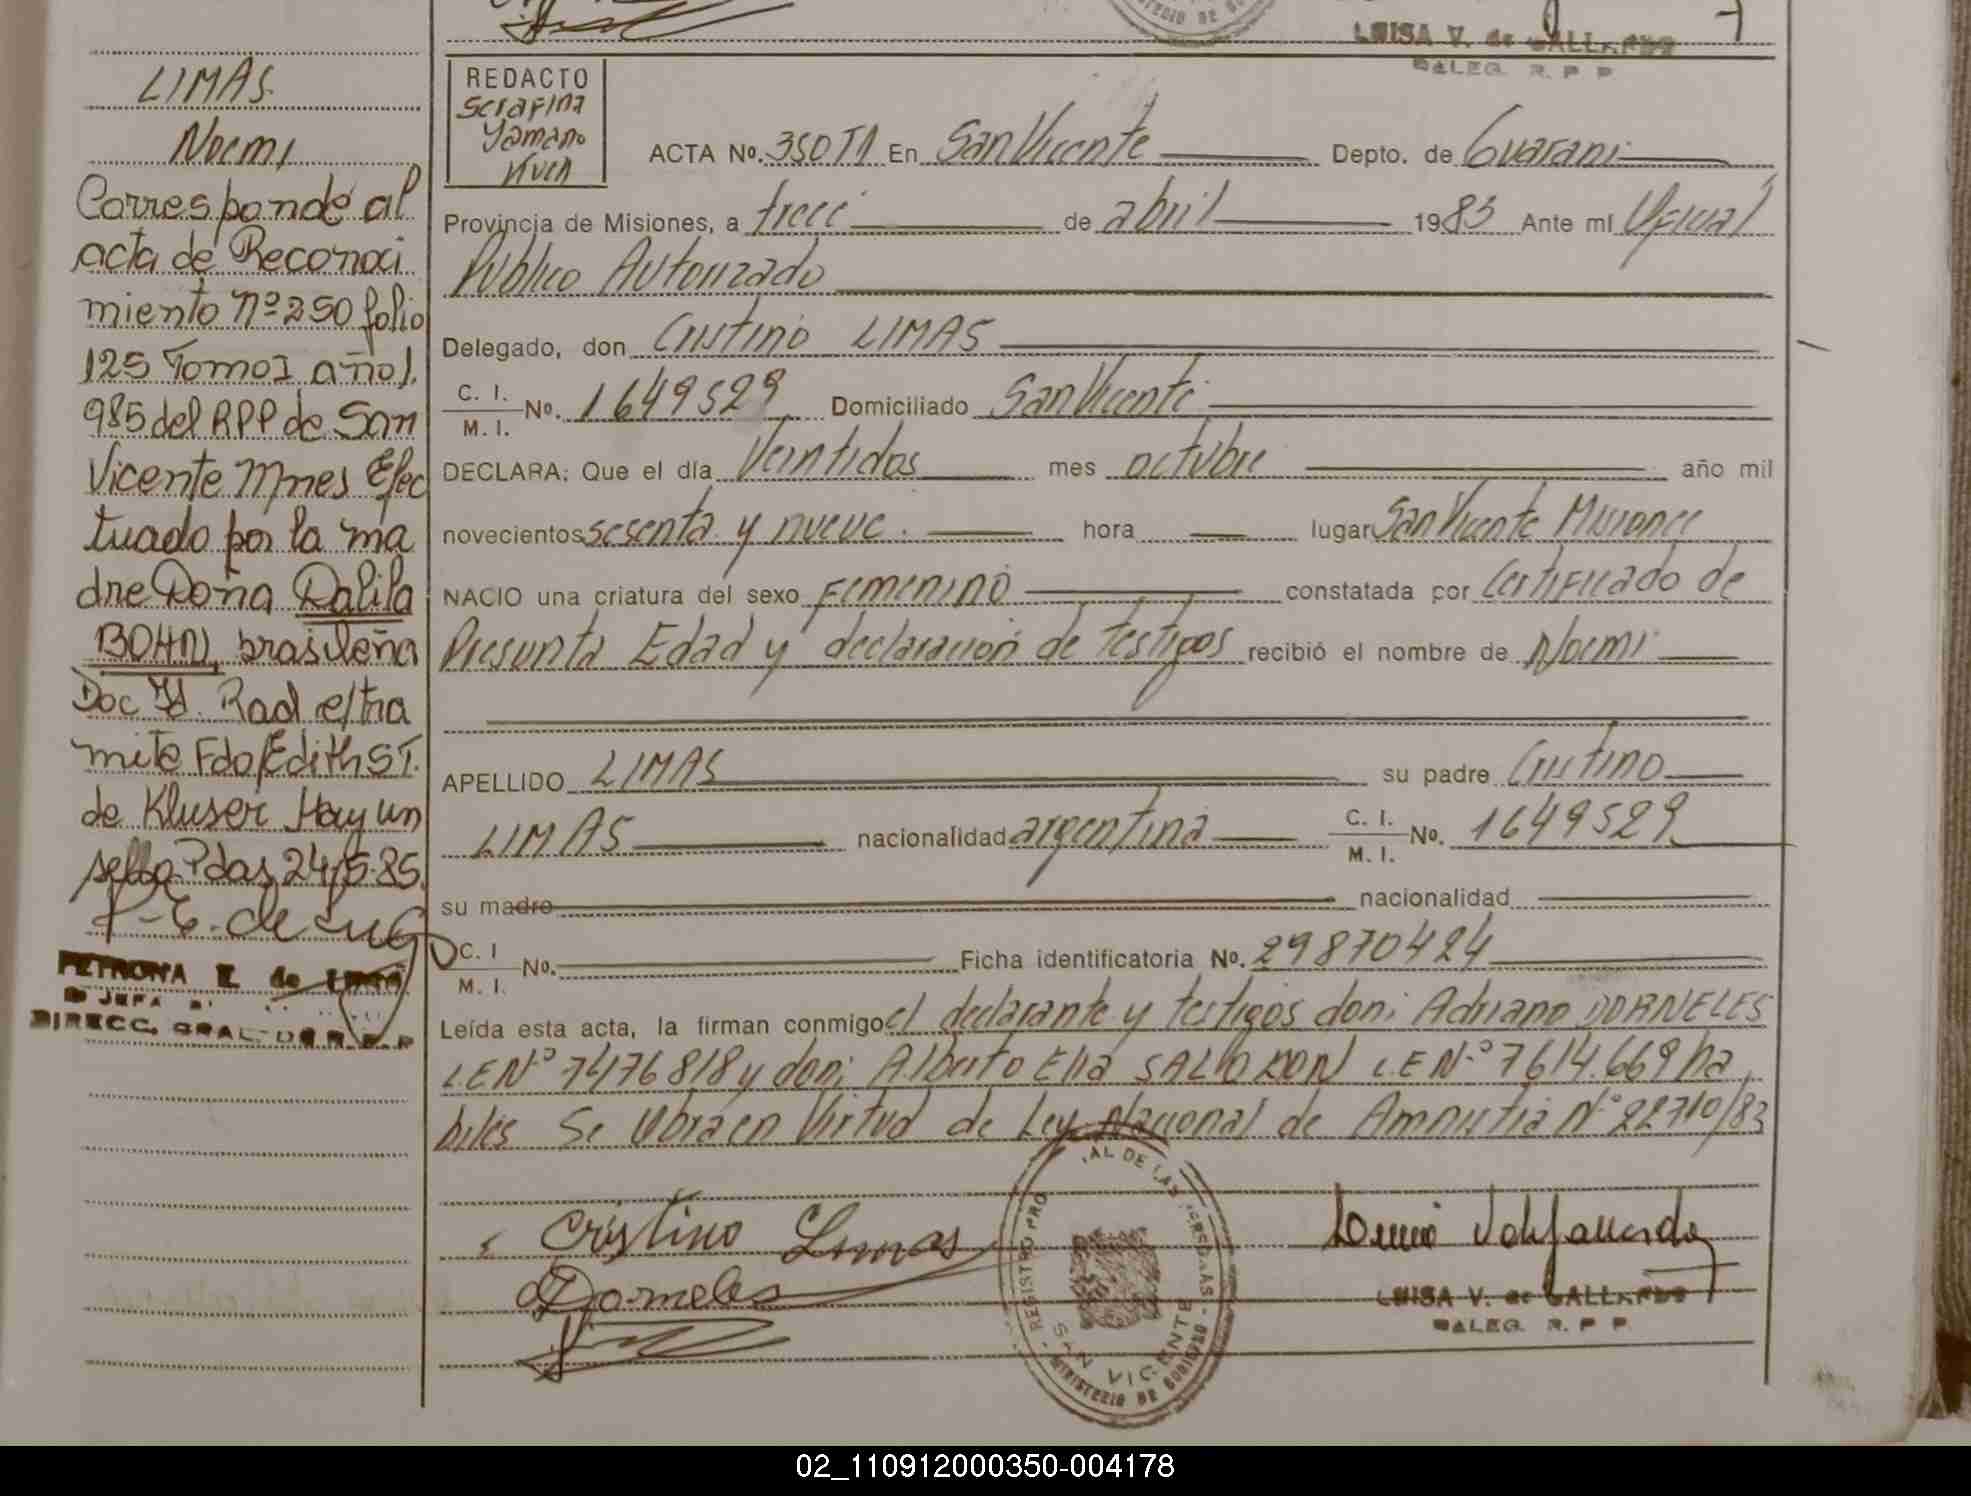 LUISA V. de GALLARDO
DALEG. R. P. P.
LIMAS
Noemi
Corresponde al
acta de Reconoci
miento Nº 250 folio
125 Tomo I año 1.
985 del RPP de San
Vicente Mnes Efec
tuado por la ma
dre Doña Dalila
BOHN, brasileña
Doc Id. Rad e/tra
mite Fdo/Edith S T.
de Kluser Hay un
sello Pdas, 24/5-85.
PETRONA E. de
JEFA
DIRECC. GRAL. DE R.P.P
REDACTO
Serafina
Yamano
Viven
ACTA No. 350 T1 En San Vicente Depto. de Guarani
Provincia de Misiones, a trece de abril 1983 Ante mí Oficial
Público Autorizado
Delegado, don Cristino LIMAS
C. I.
M. I. No. 1649529 Domiciliado San Vicente
DECLARA: Que el día Veintidos mes octubre año mil
novecientos sesenta y nueve. hora lugar San Vicente Misiones
NACIO una criatura del sexo Femenino constatada por Certificado de
Presunta Edad y declaración de testigos recibió el nombre de Noemi
APELLIDO LIMAS su padre Cristino
LIMAS nacionalidad argentina C. I.
M. I. No. 1649529
su madre nacionalidad
C. I
M. I. No. Ficha identificatoria No. 29870424
Leída esta acta, la firman conmigo el declarante y testigos don: Adriano DORNELES
L.E Nº 7476818 y don: Alberto Elia SALVADON L.E Nº 7614.669 ha
biles Se Obra en Virtud de Ley Nacional de Amnistia Nº 22710/83
Cristino Limas
Dorneles
REGISTRO PROVINCIAL DE LAS PERSONAS
SAN VICENTE
MINISTERIO DE GOBIERNO
LUISA V. de GALLARDO
DALEG. R. P. P.
02_110912000350-004178